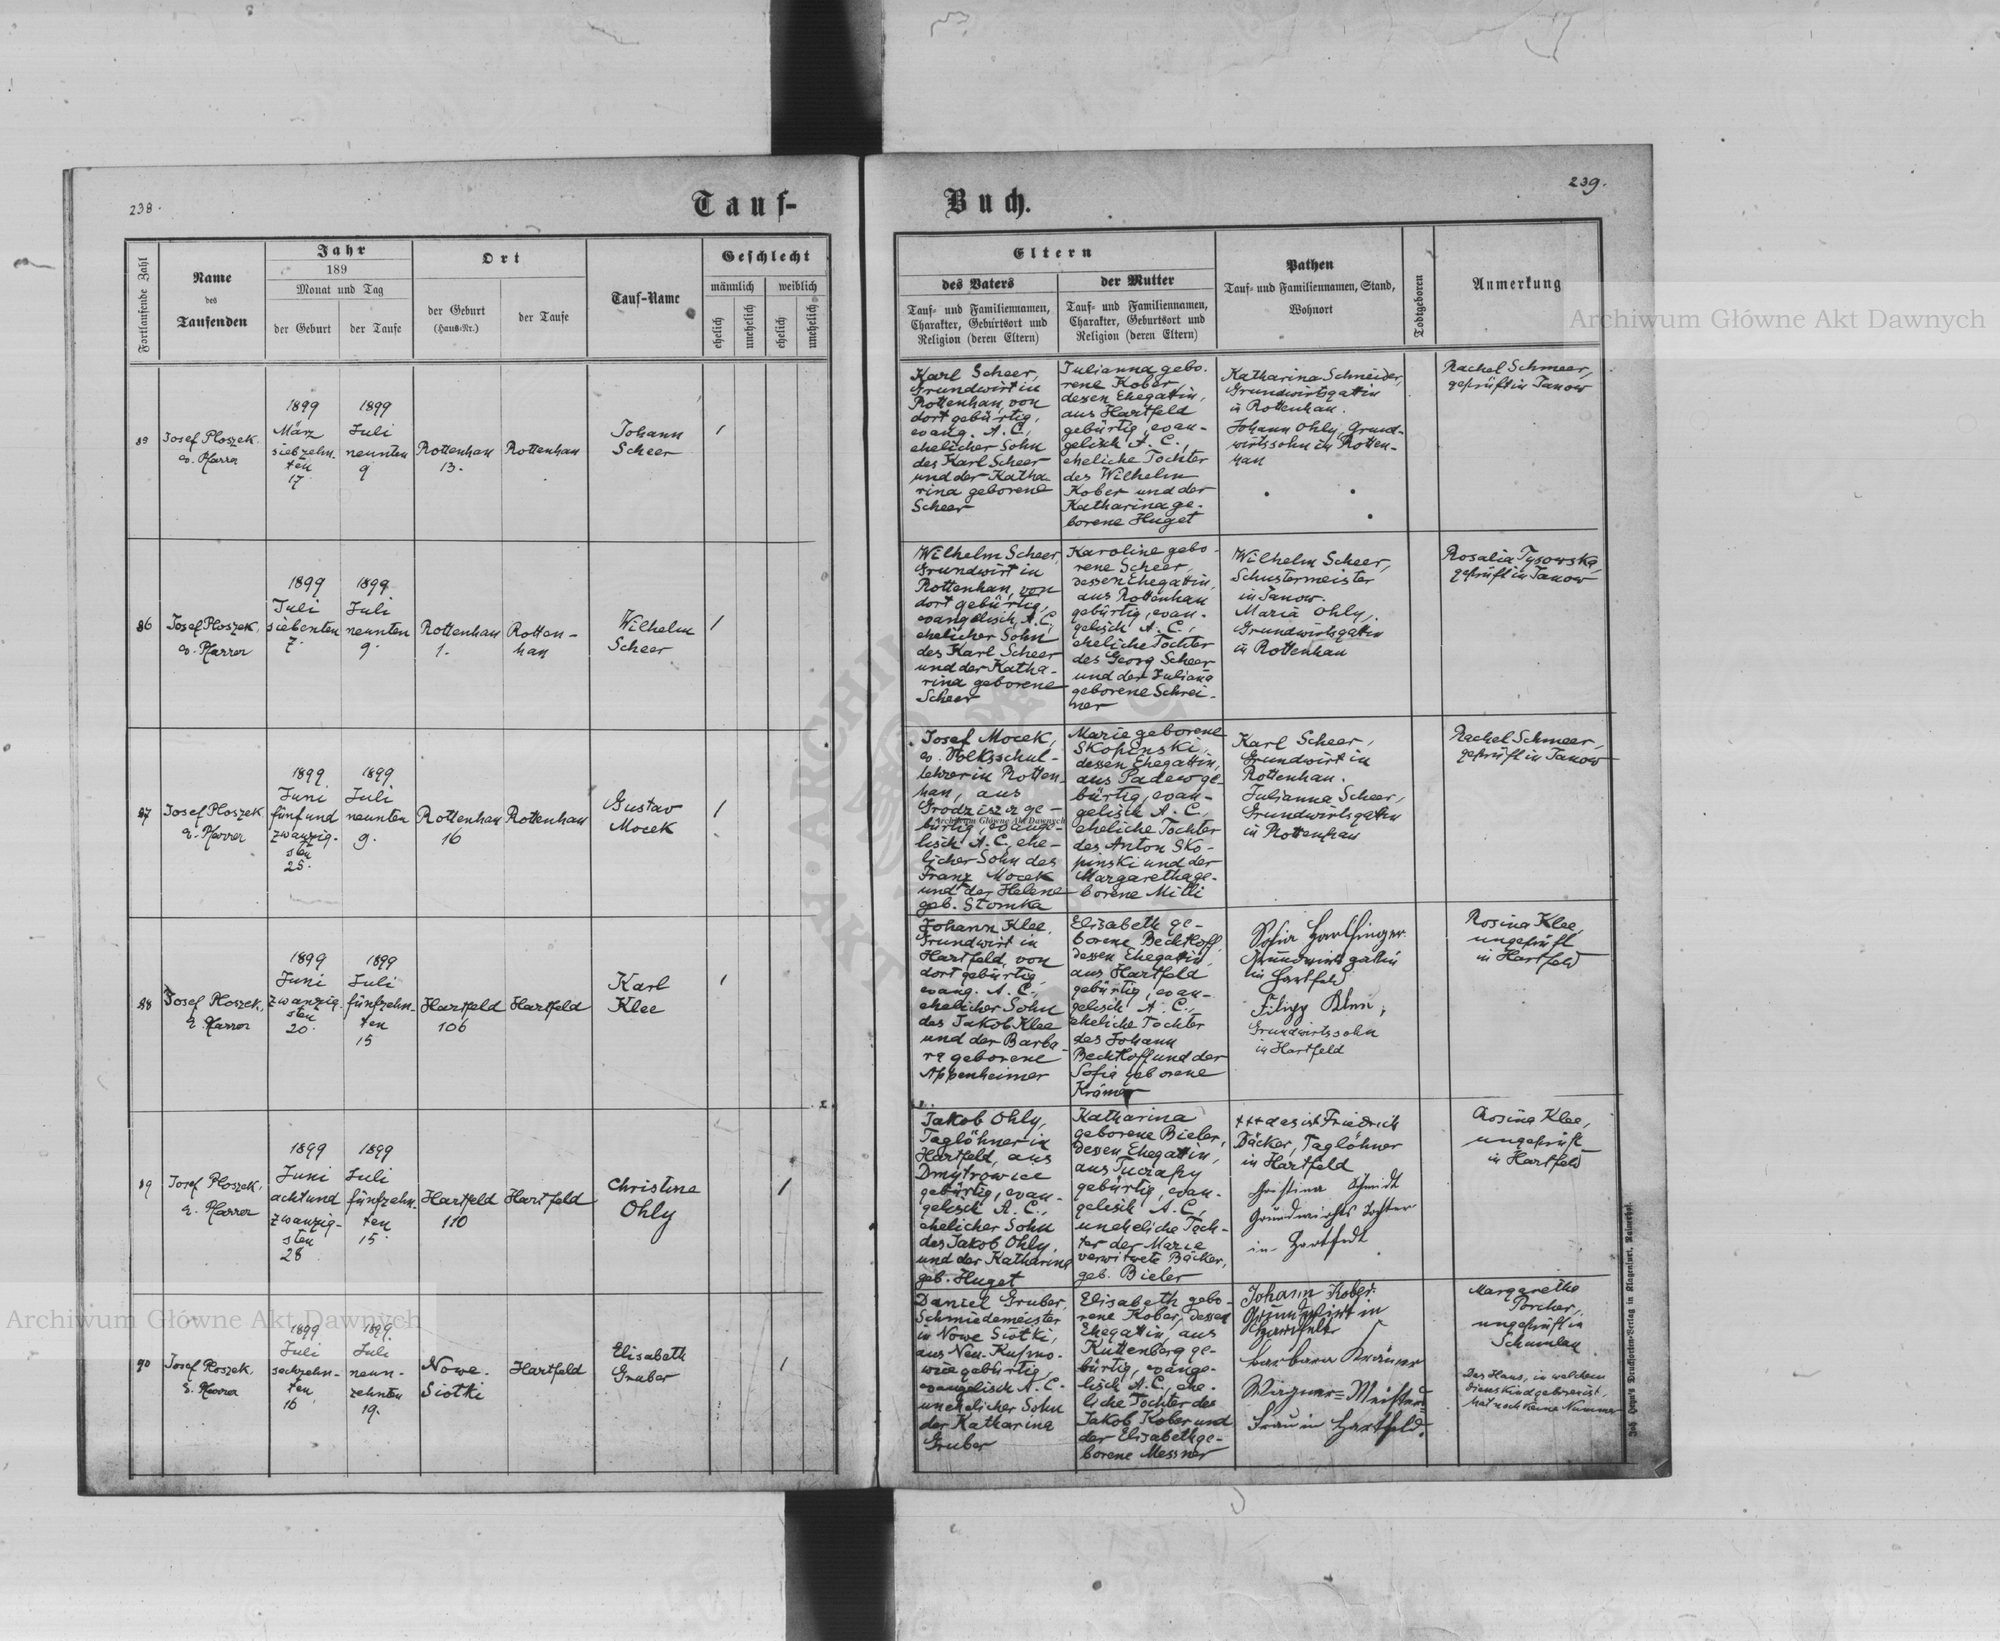 238.
Tauf-
Buch.
239.
Fortlaufende Zahl
Name
des
Taufenden
Jahr
189
Monat und Tag
der Geburt
der Taufe
Ort
der Geburt
(Haus-Nr.)
der Taufe
Tauf-Name
Geschlecht
männlich
weiblich
ehelich
unehelich
ehelich
unehelich
Eltern
des Vaters
Tauf- und Familiennamen,
Charakter, Geburtsort und
Religion (deren Eltern)
der Mutter
Tauf- und Familiennamen,
Charakter, Geburtsort und
Religion (deren Eltern)
Pathen
Tauf- und Familiennamen, Stand,
Wohnort
Todtgeboren
Anmerkung
Josef Ploszek.
ev. Pfarrer
1899
März
siebzehn-
ten
17.
1899
Juli
neunten
9
Rottenhan
13.
Rottenhan
Johann
Scheer
1
Karl Scheer,
Grundwirt in
Rottenhan, von
dort gebürtig,
evang. A. C.,
ehelicher Sohn
des Karl Scheer
und der Katha-
rina geborene
Scheer
Julianna gebo-
rene Kober,
dessen Ehegattin,
aus Hartfeld
gebürtig, evan-
gelisch A. C.,
eheliche Tochter
des Wilhelm
Kober und der
Katharina ge-
borene Huget
Katharina Schneider,
Grundwirtsgattin
in Rottenhan.
Johann Ohly, Grund-
wirtssohn in Rotten-
han
Rachel Schmeer,
geprüft in Janow
86
Josef Ploszek,
ev. Pfarrer
1899
Juli
siebenten
7.
1899
Juli
neunten
9.
Rottenhan
1.
Rotten-
han
Wilhelm
Scheer
1
Wilhelm Scheer,
Grundwirt in
Rottenhan, von
dort gebürtig,
evangelisch A. C.,
ehelicher Sohn
des Karl Scheer
und der Katha-
rina geborene
Scheer
Karoline gebo-
rene Scheer,
dessen Ehegattin,
aus Rottenhan
gebürtig, evan-
gelisch A. C.,
eheliche Tochter
des Georg Scheer
und der Juliana
geborene Schrei-
ner
Wilhelm Scheer,
Schustermeister
in Janow.
Maria Ohly,
Grundwirtsgattin
in Rottenhan
Rosalia Tysowska,
geprüft in Janow
87
Josef Ploszek
ev. Pfarrer
1899
Juni
fünfund
zwanzig-
sten
25.
1899
Juli
neunten
9.
Rottenhan
16
Rottenhan
Gustav
Mocek
1
Josef Mocek,
ev. Volksschul-
lehrer in Rotten-
han, aus
Grodzisz ge-
bürtig, evange-
lisch A. C., ehe-
licher Sohn des
Franz Mocek
und der Helene
geb. Stomka
Marie geborene
Skopinski,
dessen Ehegattin,
aus Padew ge-
bürtig, evan-
gelisch A. C.,
eheliche Tochter
des Anton Sko-
pinski und der
Margaretha ge-
borene Mitli
Karl Scheer,
Grundwirt in
Rottenhan.
Julianna Scheer,
Grundwirtsgattin
in Rottenhan
Rachel Schmeer,
geprüft in Janow
88
Josef Ploszek,
ev. Pfarrer
1899
Juni
zwanzig-
sten
20.
1899
Juli
fünfzehn-
ten
15
Hartfeld
106
Hartfeld
Karl
Klee
1
Johann Klee,
Grundwirt in
Hartfeld, von
dort gebürtig,
evang. A. C.,
ehelicher Sohn
des Jakob Klee
und der Barba-
ra geborene
Appenheimer
Elisabeth ge-
borene Bechtloff,
dessen Ehegattin,
aus Hartfeld
gebürtig, evan-
gelisch A. C.,
eheliche Tochter
des Johann
Bechtloff und der
Sofia geborene
Krämer
Sofia
Grundwirtsgattin
in Hartfeld
Filipp
Grundwirtssohn
in Hartfeld
Rosina Klee,
ungeprüft
in Hartfeld
89
Josef Ploszek,
ev. Pfarrer
1899
Juni
achtund
zwanzig-
sten
28
1899
Juli
fünfzehn-
ten
15.
Hartfeld
110
Hartfeld
Christine
Ohly
1
Jakob Ohly,
Taglöhner in
Hartfeld, aus
Dmytrowice
gebürtig, evan-
gelisch A. C.,
ehelicher Sohn
des Jakob Ohly,
und der Katharina
geb. Huget
Katharina
geborene Bieler,
dessen Ehegattin,
aus Tuczapy
gebürtig, evan-
gelisch A. C.,
uneheliche Toch-
ter der Marie
verwitwete Bäcker,
geb. Bieler
+++ das ist Friedrich
Bäcker, Taglöhner
in Hartfeld
Christina Schmidt
Grundwirths Tochter
in Hartfeld
Rosina Klee,
ungeprüft
in Hartfeld
90
Josef Ploszek,
ev. Pfarrer
1899
Juli
sechzehn-
ten
16
1899
Juli
neun-
zehnten
19.
Nowe.
Siołki
Hartfeld
Elisabeth
Gruber
1
Daniel Gruber,
Schmiedemeister
in Nowe Siołki,
aus Neu-Kupno-
wice gebürtig,
evangelisch A. C.
unehelicher Sohn
der Katharina
Gruber
Elisabeth gebo-
rene Kober, dessen
Ehegattin, aus
Kuttenberg ge-
bürtig, evange-
lisch A. C., ehe-
liche Tochter des
Jakob Kober und
der Elisabeth ge-
borene Messner
Johann Kober
Grundwirt in
Hartfeld
Barbara Krämer
Frau in Hartfeld.
Margarethe
Porcher,
ungeprüft in
Schumlau
Das Haus, in welchem
dieses Kind geboren ist,
hat noch keine Nummer
Archiwum Główne Akt Dawnych
Archiwum Główne Akt Dawnych
Archiwum Główne Akt Dawnych